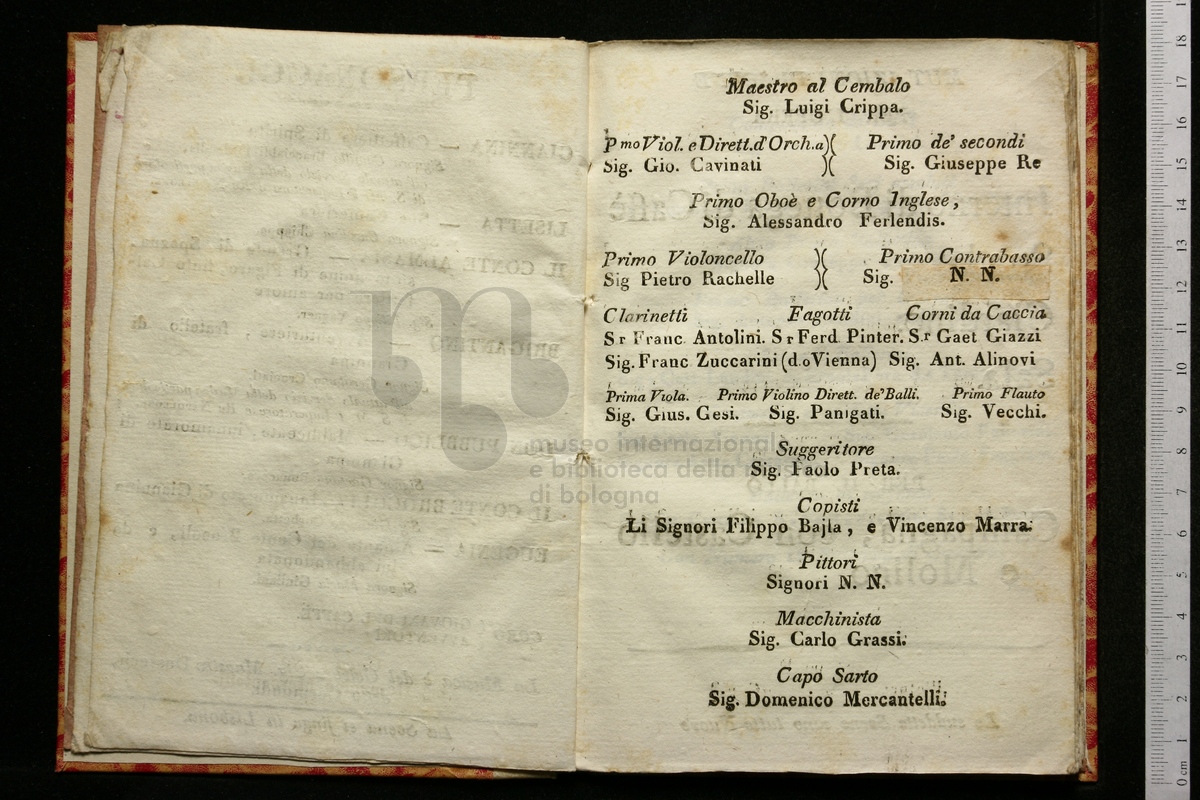 Maestro al Cembalo
Sig. Luigi Crippa.
Pmo Viol. e Dirett. d'Orch.a)( Primo de' secondi
Sig. Gio. Cavinati )( Sig. Giuseppe Re
Primo Oboè e Corno Inglese,
Sig. Alessandro Ferlendis.
Primo Violoncello )( Primo Contrabasso
Sig Pietro Rachelle )( Sig. N. N.
Clarinetti Fagotti Corni da Caccia
Sr Franc. Antolini. Sr Ferd. Pinter. S.r Gaet Giazzi
Sig. Franc Zuccarini (d.o Vienna) Sig. Ant. Alinovi
Prima Viola. Primo Violino Dirett. de' Balli. Primo Flauto
Sig. Gius. Gesi. Sig. Panigati. Sig. Vecchi.
Suggeritore
Sig. Paolo Preta.
Copisti
Li Signori Filippo Bajla, e Vincenzo Marra.
Pittori
Signori N. N.
Macchinista
Sig. Carlo Grassi.
Capo Sarto
Sig. Domenico Mercantelli.
museo internazionale
e biblioteca della musica
di bologna